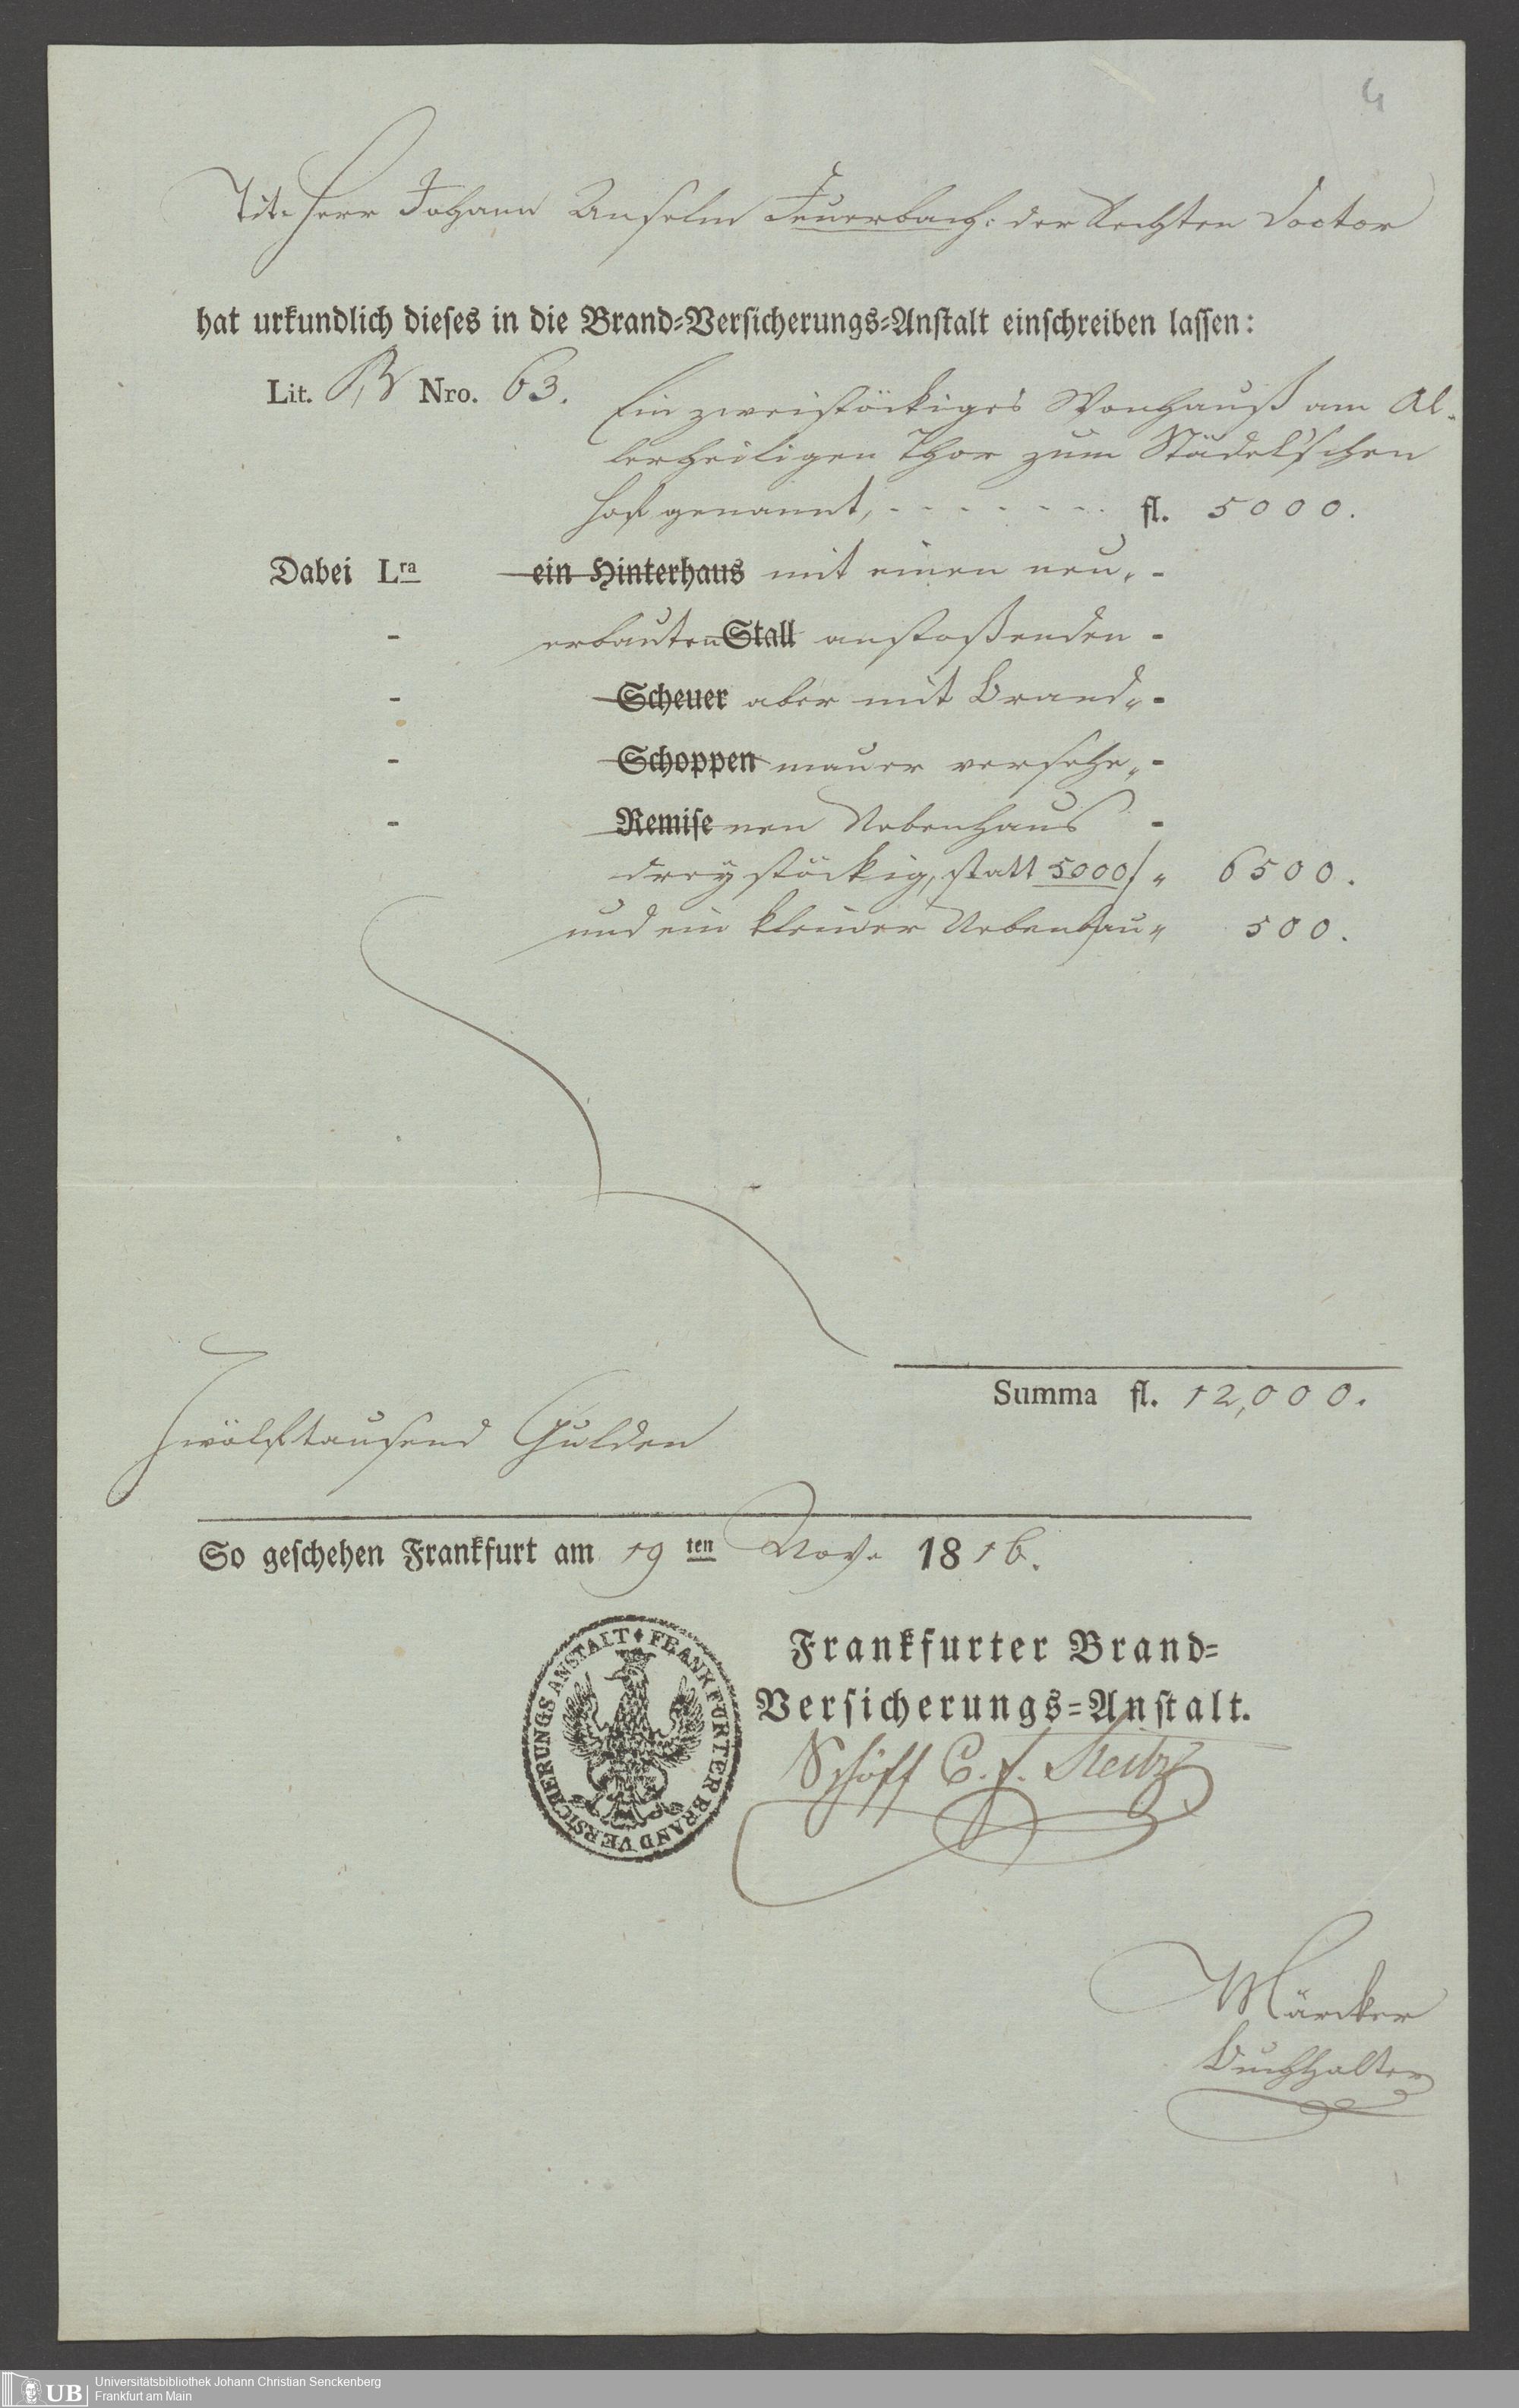 4
Tit. Herr Johann Anselm Feuerbach: der Rechten Doctor
hat urkundlich dieses in die Brand-Versicherungs-Anstalt einschreiben lassen:
Lit. B Nro. 63. Ein zweistöckiges Wonhauß am Al-
lerheiligen Thor zum Städel'schen
Hof genannt, - - - - - - - fl. 5000.
Dabei Lra ein Hinterhaus mit einen neu„ -
- erbauten Stall anstoßenden -
- Scheuer aber mit Brand„ -
- Schoppen mauer versehe„ -
- Remise nen Nebenhaus -
dreystöckig, statt 5000 f „ 6500.
und ein kleiner Nebenbau „ 500.
Summa fl. 12,000.
Zwölftausend Gulden
So geschehen Frankfurt am 19 ten Nov. 1816.
FRANKFURTER BRAND VERSICHERUNGS ANSTALT
Frankfurter Brand-
Versicherungs-Anstalt.
Schöff C. F. Steitz
Märcker
Buchhalter
UB
Universitätsbibliothek Johann Christian Senckenberg
Frankfurt am Main